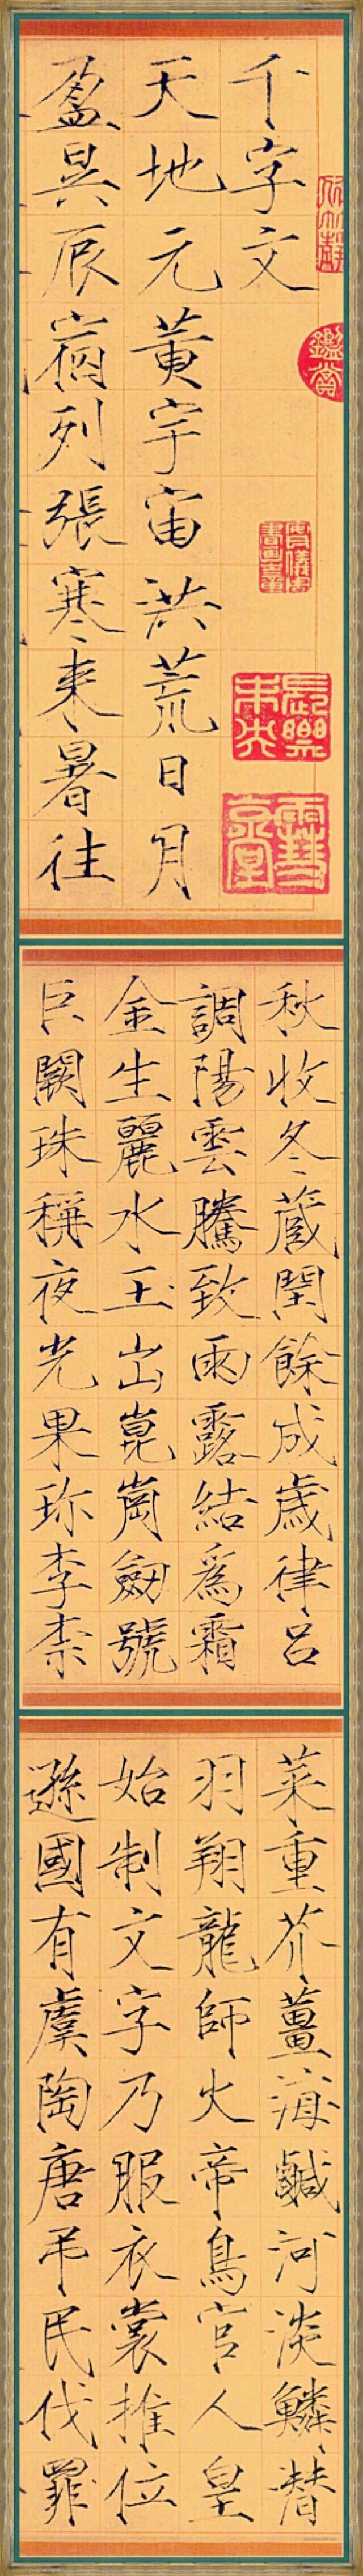 鑑賞
長樂
未央
千字文
天地元黃宇宙洪荒日月
盈昃辰宿列張寒来暑往
秋收冬藏閏餘成歲律呂
調陽雲騰致雨露結爲霜
金生麗水玉出崑崗劒號
巨闕珠稱夜光果珎李柰
菜重芥薑海鹹河淡鱗潛
羽翔龍師火帝鳥官人皇
始制文字乃服衣裳推位
遜國有虞陶唐弔民伐罪